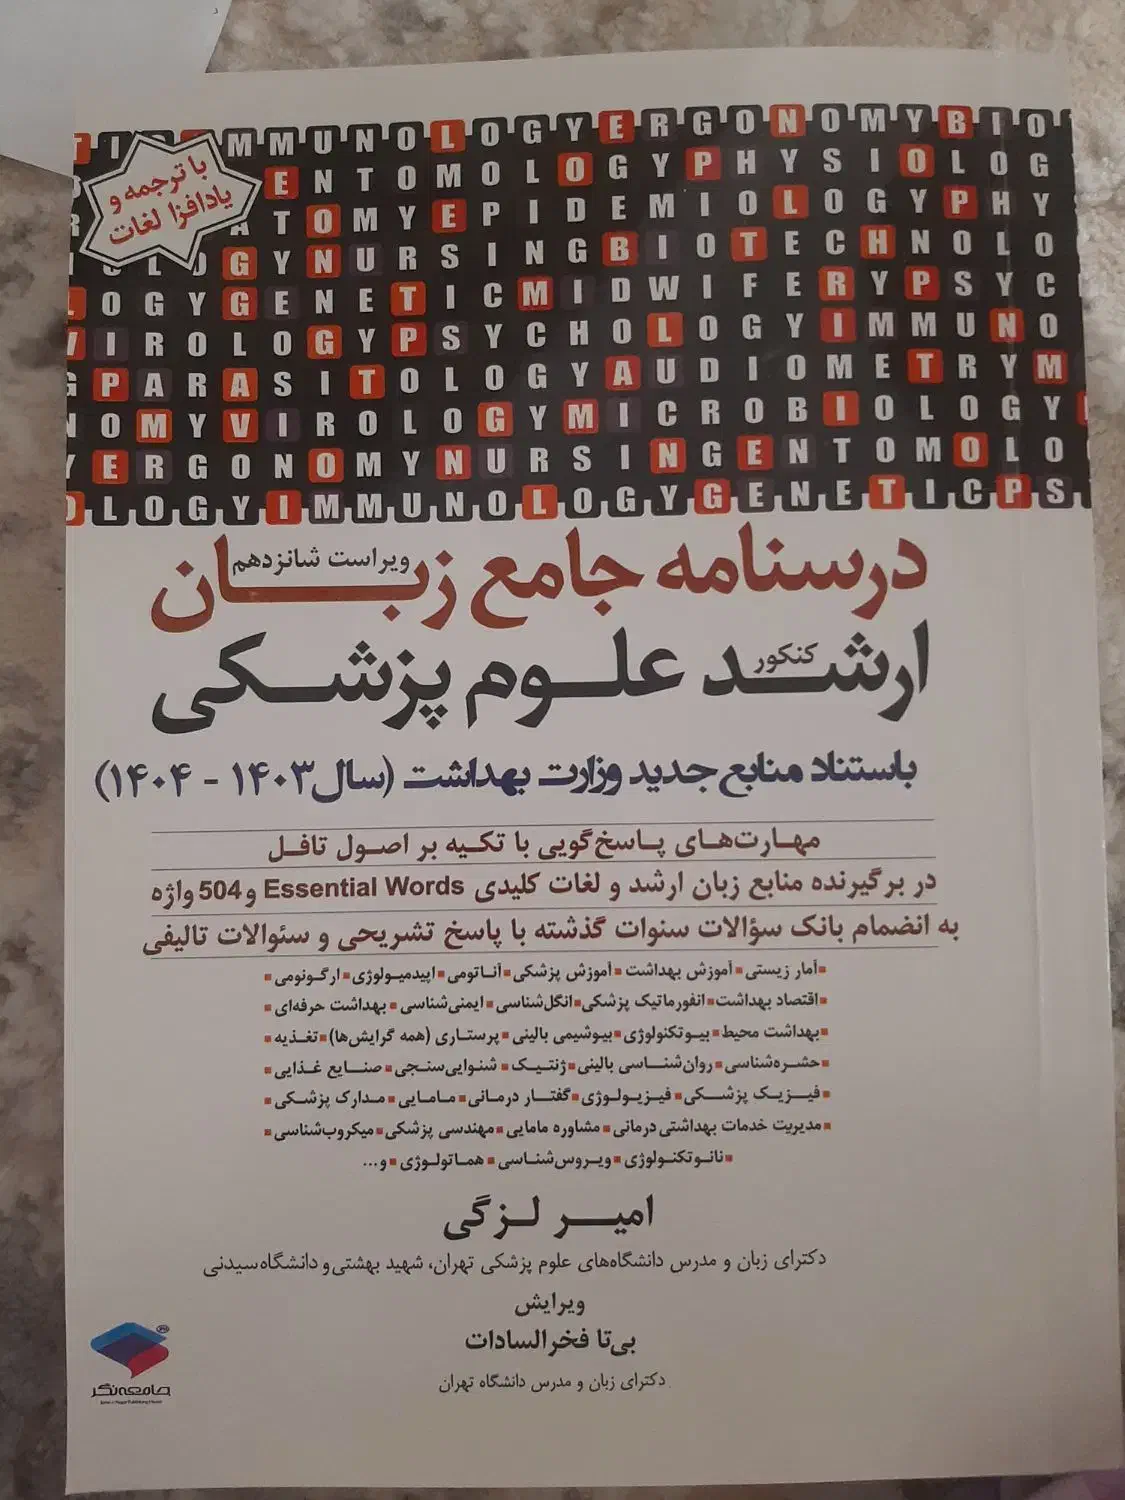 TI MMUNOLOGYERGONOMYBIO
ENTOMOLOGYPHYSIOLOG
ATOMYEPIDEMIOLOGYPHY
OGYNURSINGBIOTECHNOLO
LOGYGENETICMIDWIFERYPSYC
VIROLOGYPSYCHOLOGYIMMUNO
GPARASITOLOGYAUDIOMETRYM
NOMYVIROLOGYMICROBIOLOGY
YERGONOMYNURSINGENTOMOLO
OLOGYIMMUNOLOGYGENETICPS
با ترجمه و
یادافزا لغات
درسنامه جامع زبان ویراست شانزدهم
ارشد کنکور علوم پزشکی
با استناد منابع جدید وزارت بهداشت (سال ۱۴۰۳ - ۱۴۰۴)
مهارت‌های پاسخ‌گویی با تکیه بر اصول تافل
در برگیرنده منابع زبان ارشد و لغات کلیدی Essential Words و 504 واژه
به انضمام بانک سؤالات سنوات گذشته با پاسخ تشریحی و سئوالات تالیفی
▪آمار زیستی▪آموزش بهداشت▪آموزش پزشکی▪آناتومی▪اپیدمیولوژی▪ارگونومی▪
▪اقتصاد بهداشت▪انفورماتیک پزشکی▪انگل‌شناسی▪ایمنی‌شناسی▪بهداشت حرفه‌ای▪
▪بهداشت محیط▪بیوتکنولوژی▪بیوشیمی بالینی▪پرستاری (همه گرایش‌ها)▪تغذیه▪
▪حشره‌شناسی▪روان‌شناسی بالینی▪ژنتیک▪شنوایی‌سنجی▪صنایع غذایی▪
▪فیزیک پزشکی▪فیزیولوژی▪گفتار درمانی▪مامایی▪مدارک پزشکی▪
▪مدیریت خدمات بهداشتی درمانی▪مشاوره مامایی▪مهندسی پزشکی▪میکروب‌شناسی▪
▪نانوتکنولوژی▪ویروس‌شناسی▪هماتولوژی▪و...
امیر لزگی
دکترای زبان و مدرس دانشگاه‌های علوم پزشکی تهران، شهید بهشتی و دانشگاه سیدنی
ویرایش
بی‌تا فخرالسادات
دکترای زبان و مدرس دانشگاه تهران
جامعه‌نگر